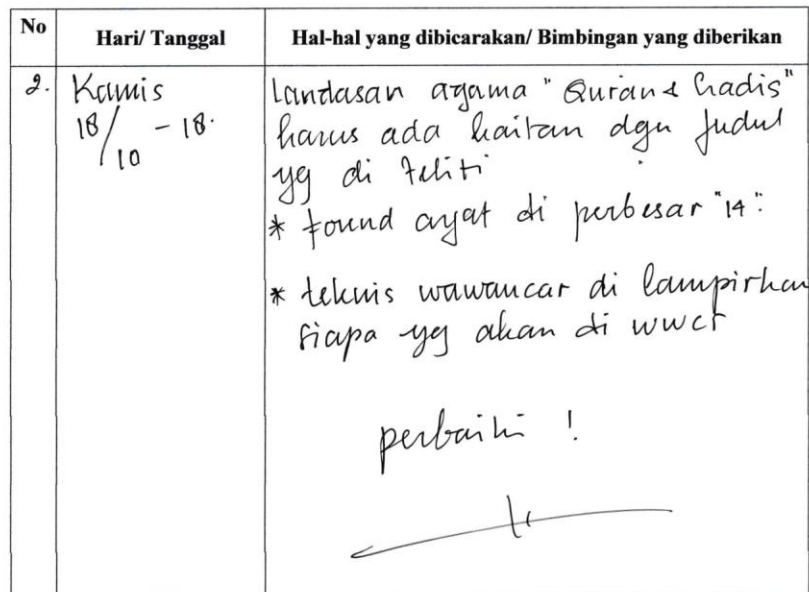 No Hari/ Tanggal Hal-hal yang dibicarakan/ Bimbingan yang diberikan
2. Kamis
18/10 - 18.
Landasan agama "Quran & hadis"
harus ada kaitan dgn Judul
yg di teliti
* found ayat di perbesar "14".
* teknis wawancar di lampirkan
siapa yg akan di wwcr
perbaiki !